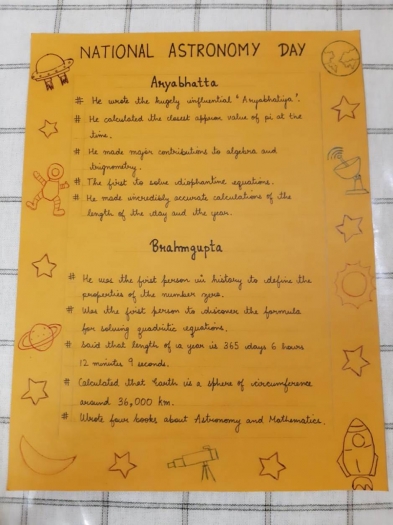 NATIONAL ASTRONOMY DAY
Aryabhatta
# He wrote the hugely influential "Aryabhatiya".
# He calculated the closest approx value of pi at the
time.
# He made major contributions to algebra and
trignometry.
# The first to solve diophantine equations.
# He made incredibly accurate calculations of the
length of the day and the year.
Brahmgupta
# He was the first person in history to define the
properties of the number zero.
# Was the first person to discover the formula
for solving quadratic equations.
# Said that length of a year is 365 days 6 hours
12 minutes 9 seconds.
# Calculated that Earth is a sphere of circumference
around 36,000 km.
# Wrote four books about Astronomy and Mathematics.